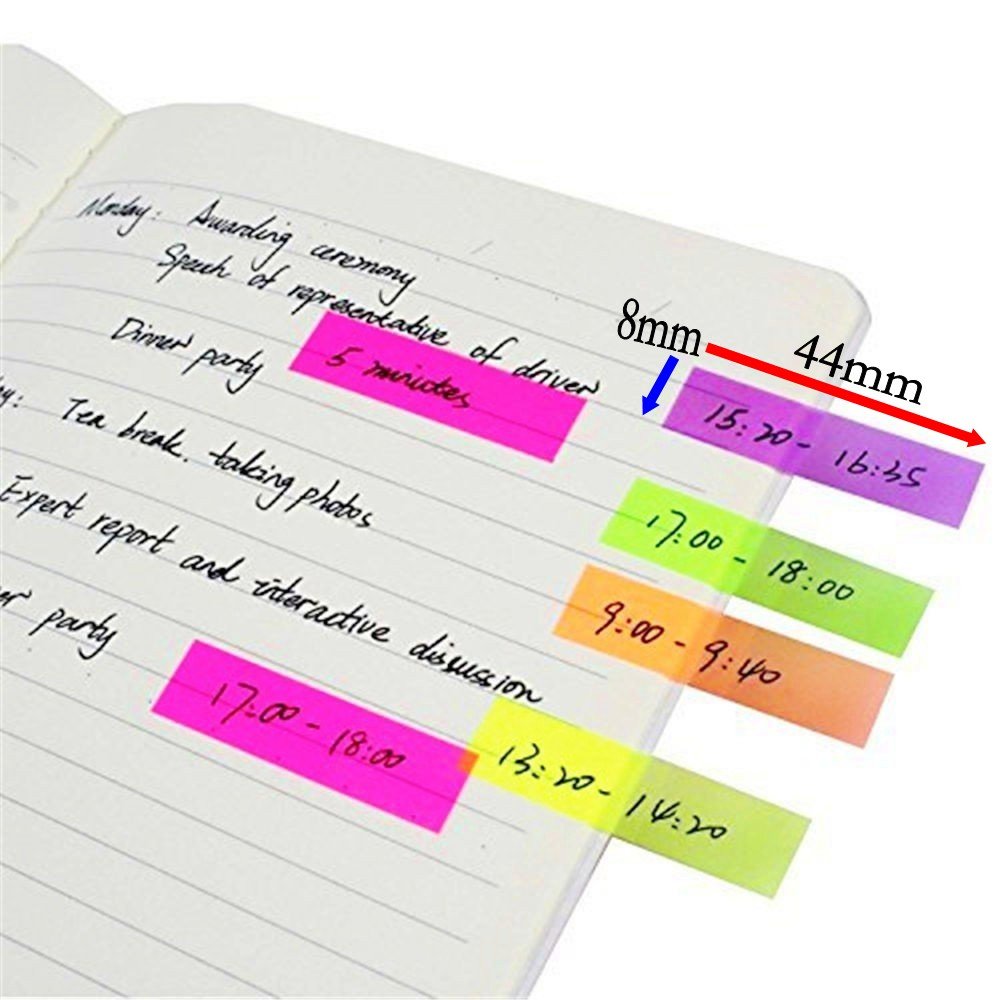 Monday: Awarding ceremony
Speech of representative of driver
8mm
44mm
Dinner party
5 minutes
15:20 - 16:35
y: Tea break. taking photos
17:00 - 18:00
Expert report and interactive discussion
9:00 - 9:40
er party
17:00 - 18:00
13:20 - 14:20